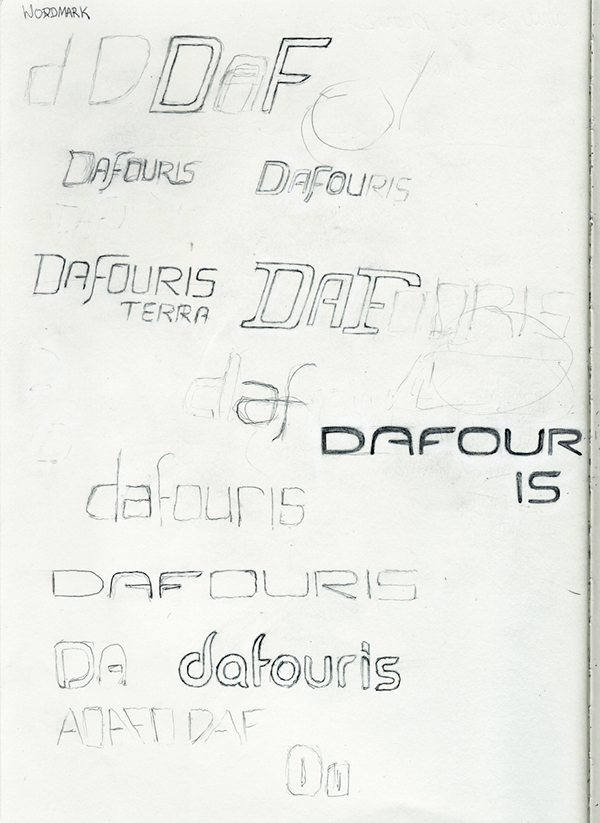 WORDMARK
d D DAF d
DAFOURIS DAFOURIS
DAFOURIS DAFOURIS
TERRA
daf
DAFOUR
IS
dafouris
DAFOURIS
DA dafouris
DAF